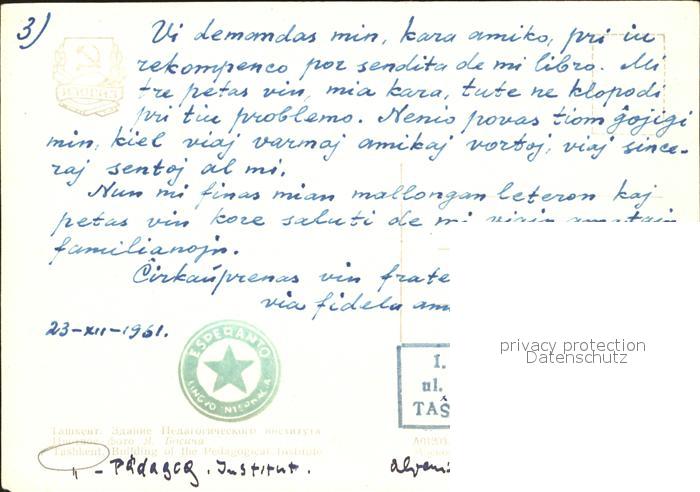 3)
Vi demandas min, kara amiko, pri iu
rekompenco por sendita de mi libro. Mi
tre petas vin, mia kara, tute ne klopodi
pri tiu problemo. Nenio povas tiom ĝojigi
min, kiel viaj varmaj amikaj vortoj, viaj since-
raj sentoj al mi.
Nun mi finas mian mallongan leteron kaj
petas vin kore saluti de mi viajn
familianojn.
Ĉirkaŭprenas vin frate
via fidela am
23-XII-1961.
ESPERANTO
LINGVO INTERNACIA
privacy protection
Datenschutz
I.
ul.
TAŠ
Ташкент. Здание Педагогического института
фото Я.
Tashkent. Building of the Pedagogical Institute
" - Pädagog. Institut.